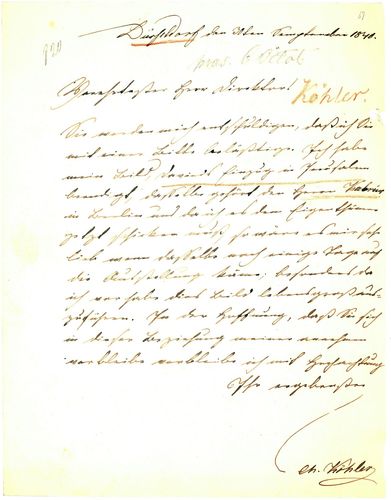 Düsseldorf den 30ten September 1840.
praes. 6 Octob
Verehrtester Herr Direktor!
Köhler.
Sie werden mich entschuldigen, daß ich Sie
mit einer Bitte belästige. Ich habe
mein Bild Davids Einzug in Jerusalem
beendigt, dasselbe gehört dem Herrn
in Berlin und da ich es dem Eigenthümer
jetzt schicken muß so wäre es mir sehr
lieb wenn dasselbe noch einige Tage auf
die Ausstellung käme; besonders da
ich vorhabe dies Bild lebensgroß aus-
zuführen. In der Hoffnung, daß Sie sich
in dieser Beziehung meiner annehmen
verbleibe verbleibe ich mit Hochachtung
Ihr ergebenster
Ch. Köhler